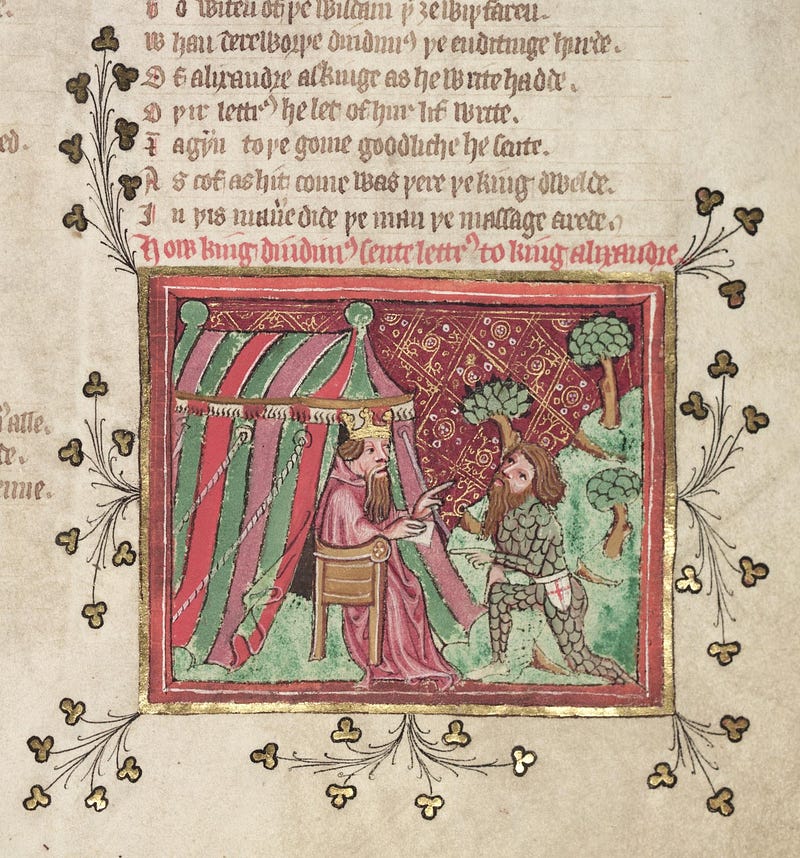 o witen of þe wisdam þ ȝe wiþ faren.
W han dereworþe dindimꝰ þe enditinge hurde.
O f alixandre askinge as he write hadde.
O þir lettrꝰ he let of hur lif write.
agyn to þe gome goodliche he sente.
A s cof as hit come was þere þe king dwelde.
I n þis man̄e dide þe man þe massage arede.
How king dindimꝰ sente lettrꝰ to king alixandre.
ed.
alle.
te.
enne.